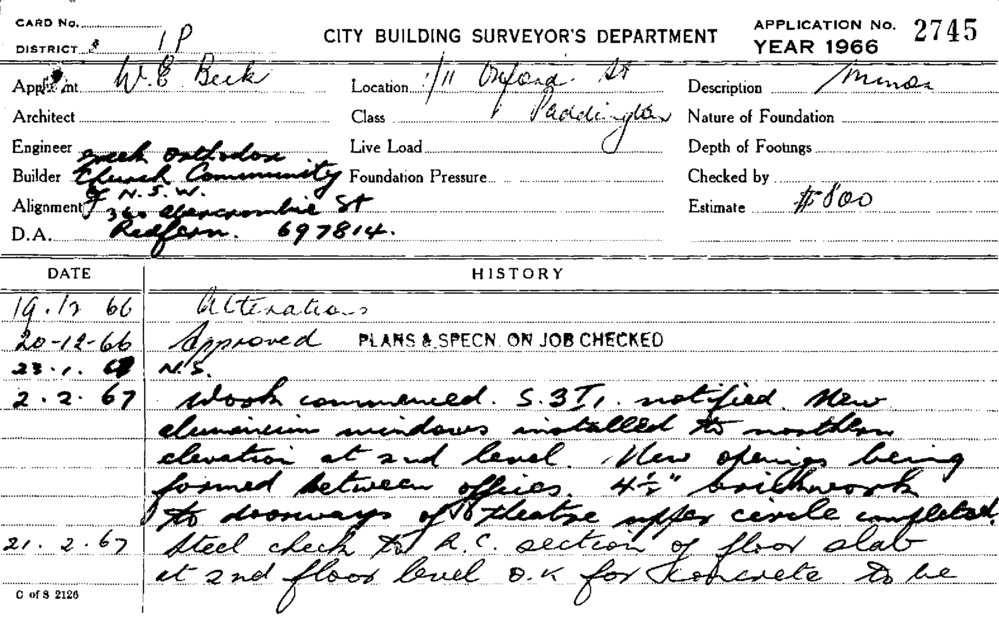 CARD No.
DISTRICT 1P
CITY BUILDING SURVEYOR'S DEPARTMENT
APPLICATION No. 2745
YEAR 1966
Applicant W. E. Beck
Location 1/11 Oxford St
Description Minor
Architect
Class Paddington
Nature of Foundation
Engineer Greek Orthodox
Live Load
Depth of Footings
Builder Church Community
Foundation Pressure
Checked by
of N.S.W.
Alignment 360 Abercrombie St
Estimate $800
D.A. Redfern. 697814.
DATE HISTORY
19.12 66 Alterations
20-12-66 Approved PLANS & SPECN. ON JOB CHECKED
23.1. N.S.
2.2.67 Work commenced. S.3T1. notified. New
aluminium windows installed to northern
elevation at 2nd level. New openings being
formed between offices. 4½" brickwork
to doorways of theatre upper circle completed.
21.2.67 Steel check to R.C. section of floor slab
at 2nd floor level O.K for concrete to be
C of S 2126